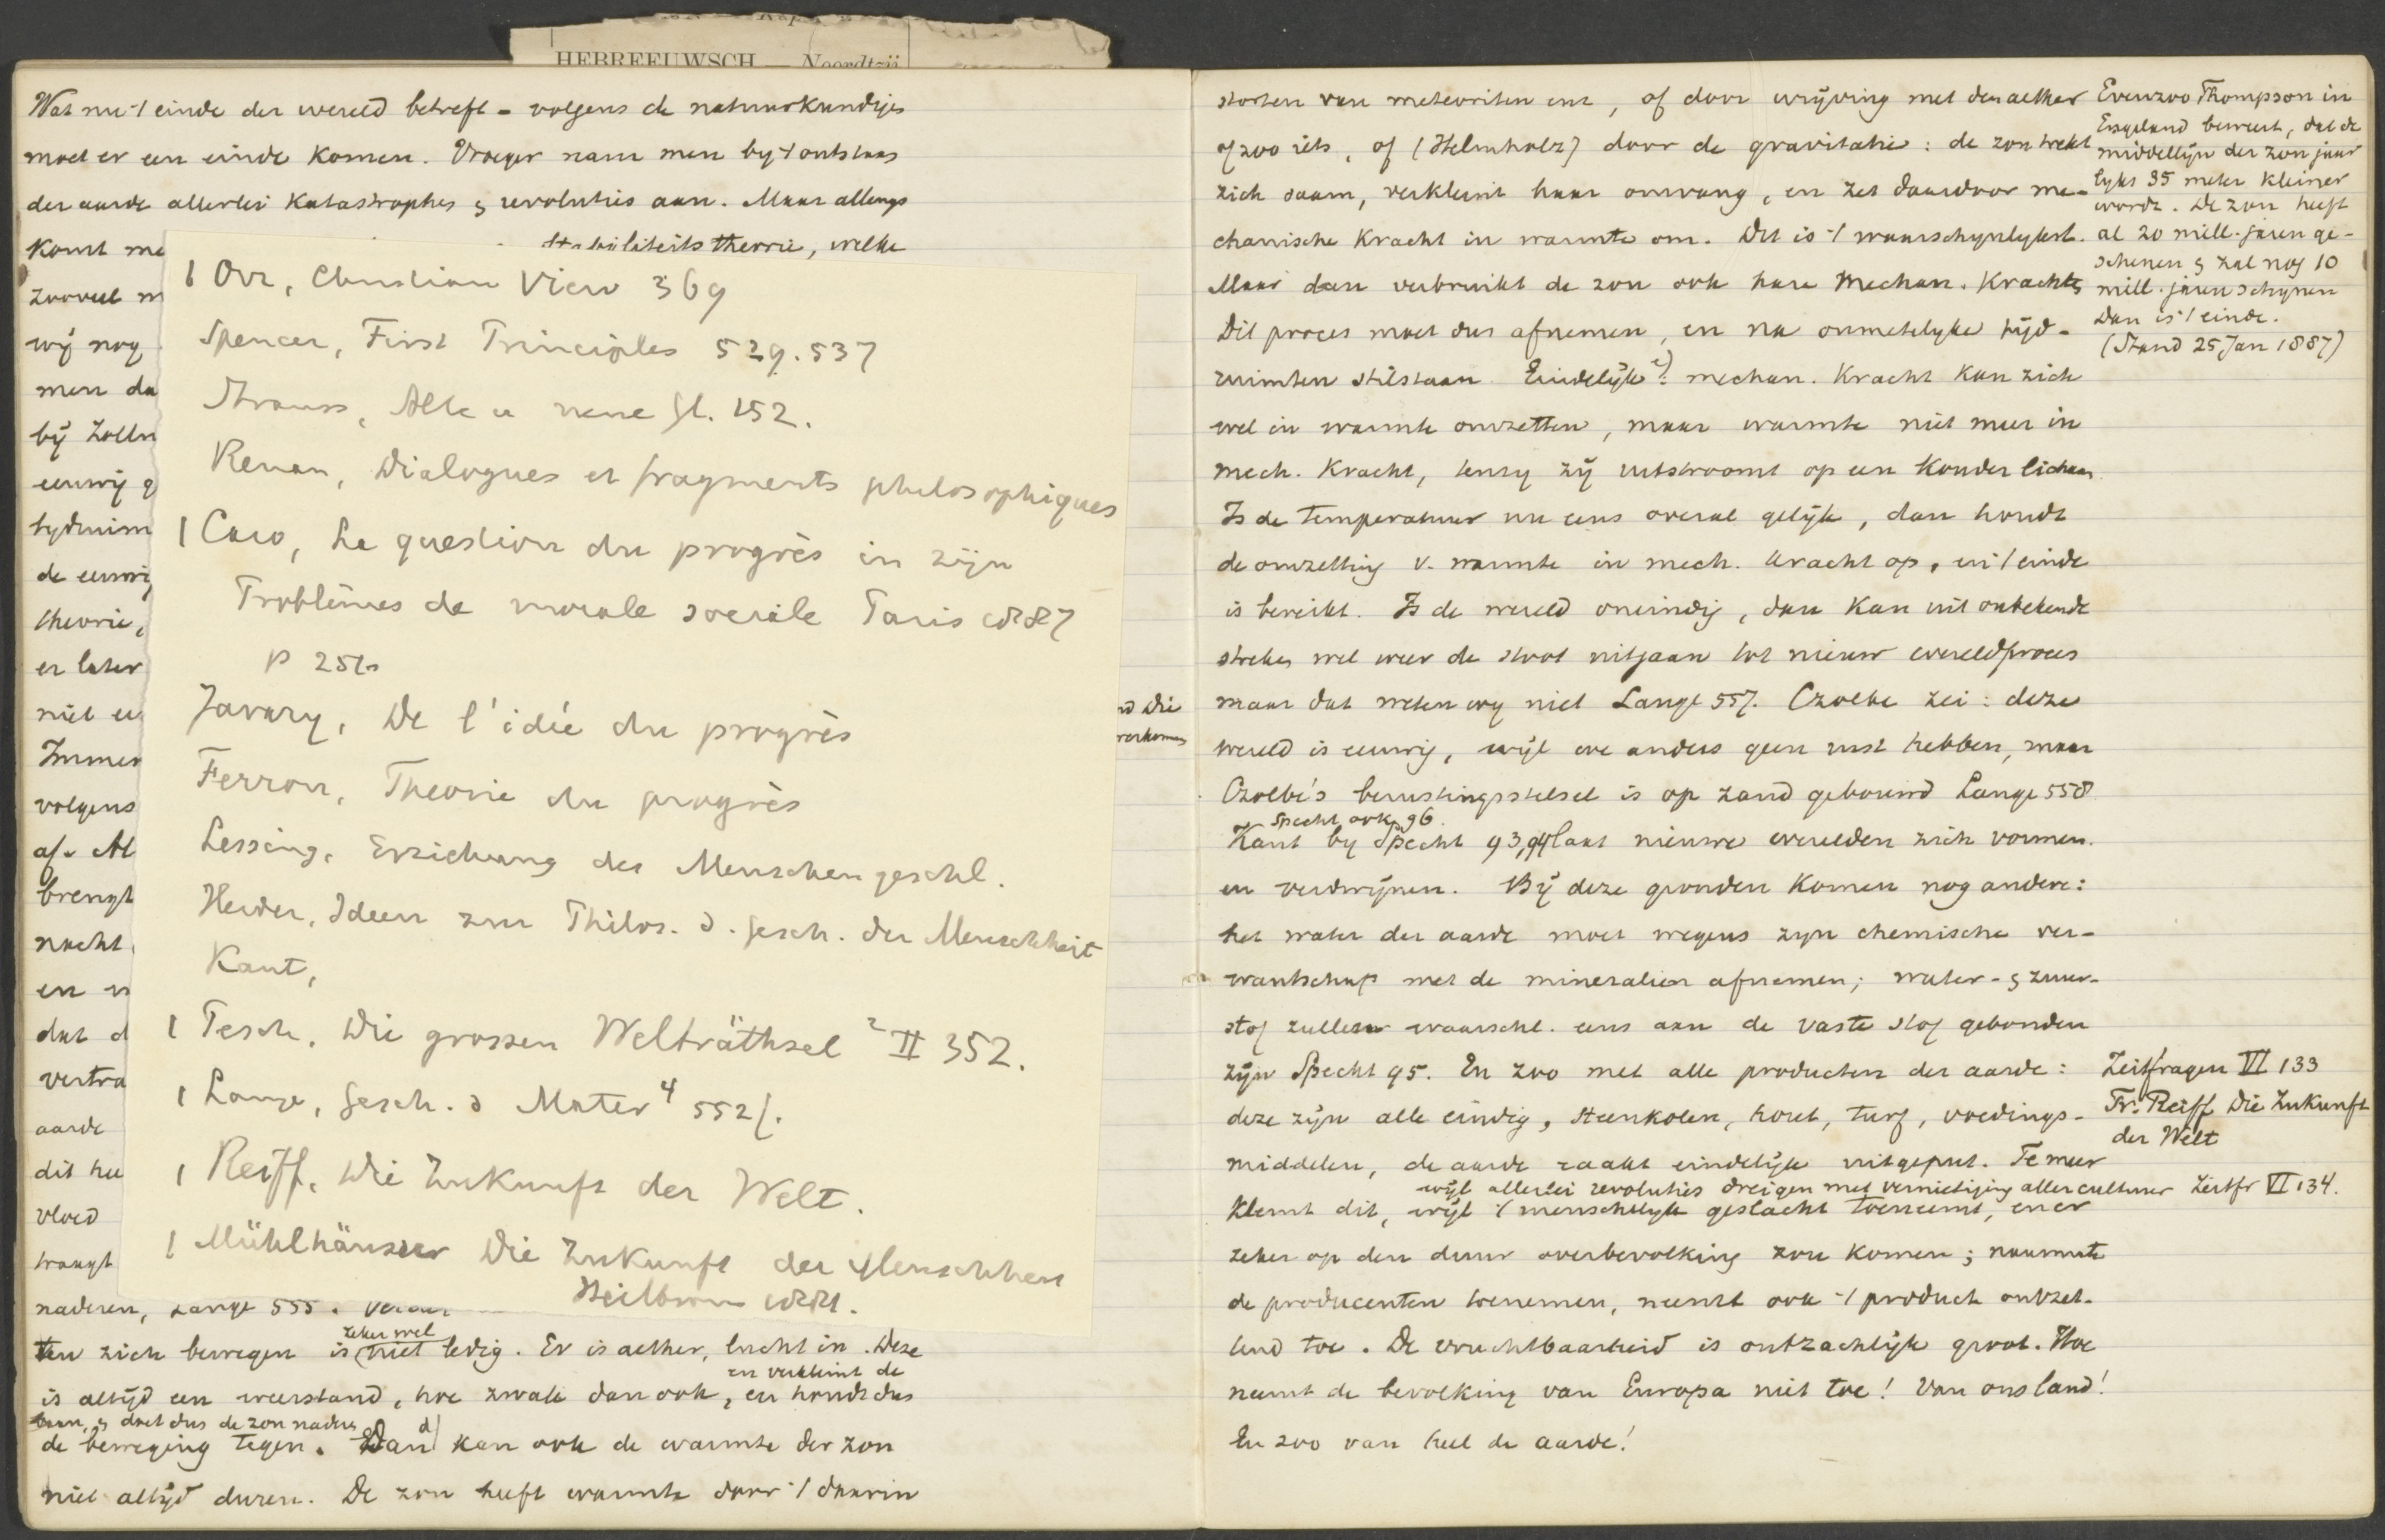 HEBREEUWSCH — Noordtzij
Wat nu 't einde der wereld betreft – volgens de natuurkundigen
moet er een einde komen. Vroeger nam men by 't ontstaan
der aarde allerlei Katastrophes & revoluties aan. Maar allengs
komt me stabiliteitstheorie, welke
zooveel m
wij nog
men da
bij Zolln
eeuwig g
tydruim
de eeuwig
theorie,
er later
niet eu
Immer
volgens
af. Al
brengt
nacht
en v
dat d
vertra
aarde
dit hee
vloed
traagt
naderen, Lange 555.
ten zich bewegen is zeker wel niet ledig. Er is aether, lucht in. Deze
is altijd een weerstand, hoe zwak dan ook, en houdt dus
en verkleint de
baan, & doet dus de zon nader
de beweging tegen. Dan kan ook de warmte der zon
niet altijd duren. De zon heeft warmte door 't daarin
1 Orr, Christian View 369
Spencer, First Principles 529. 537
Strauss, Alte u neue Gl. 152.
Renan, Dialogues et fragments philosophiques
1 Caro, La question du progrès in zijn
Problèmes de morale sociale Paris 1887
p 251
Javary, De l'idée du progrès
Ferron, Theorie du progrès
Lessing, Erziehung des Menschengeschl.
Herder, Ideen zur Philos. d. Gesch. der Menschheit
Kant,
1 Pesch, Die grossen Welträthsel ² II 352.
1 Lange, Gesch. d Mater ⁴ 552f.
1 Reiff, Die Zukunft der Welt.
1 Mühlhäusser Die Zukunft der Menschheit
Heilbronn 1881.
die
storten van meteorieten enz, of door wrijving met den aether
of zoo iets, of (Helmholz) door de gravitatie: de zon trekt
zich saam, verkleint haar omvang, en zet daardoor me-
chanische Kracht in warmte om. Dit is 't waarschynlykst.
Maar dan verbruikt de zon ook hare Mechan. Krachten
Dit proces moet dus afnemen, en na onmetelyke tijd-
ruimten stilstaan. Eindelijk: mechan. Kracht kan zich
wel in warmte omzetten, maar warmte niet meer in
mech. Kracht, tenzy zij uitstroomt op een kouder lichaam.
Is de temperatuur nu eens overal gelijk, dan houdt
de omzetting v. warmte in mech. Kracht op, en 't einde
is bereikt. Is de wereld oneindig, dan kan uit onbekende
streken wel weer de stoot uitgaan tot nieuw wereldproces
maar dat weten wy niet Lange 557. Czolbe zei: deze
wereld is eeuwig, wijl we anders geen rust hebben, maar
Czolbe's berustingsstelsel is op zand gebouwd Lange 558
Specht ook 96.
Kant by Specht 93,94 laat nieuwe werelden zich vormen.
en verdwijnen. Bij deze gronden komen nog andere:
het water der aarde moet wegens zyn chemische ver-
wantschap met de mineralien afnemen; water- & zuur-
stof zullen waarschl. eens aan de vaste stof gebonden
zijn Specht 95. En zoo met alle producten der aarde:
deze zijn alle eindig, steenkolen, hout, turf, voedings-
middelen, de aarde raakt eindelijk uitgeput. Te meer
wijl allerlei revoluties dreigen met vernietiging aller cultuur Zeitfr VI 134.
klemt dit, wijl 't menschelyk geslacht toeneemt, en er
zeker op den duur overbevolking zou komen; naarmate
de producenten toenemen, neemt ook 't product ontzet-
tend toe. De vruchtbaarheid is ontzachlijk groot. Hoe
neemt de bevolking van Europa niet toe! Van ons land!
En zoo van heel de aarde!
Evenzoo Thompson in
Engeland beweert, dat de
middellijn der zon jaar
lyks 35 meter kleiner
wordt. De zon heeft
al 20 mill. jaren ge-
schenen & zal nog 10
mill. jaren schynen
Dan is 't einde.
(Stand 25 Jan 1887)
Zeitfragen VI 133
Fr. Reiff Die Zukunft
der Welt